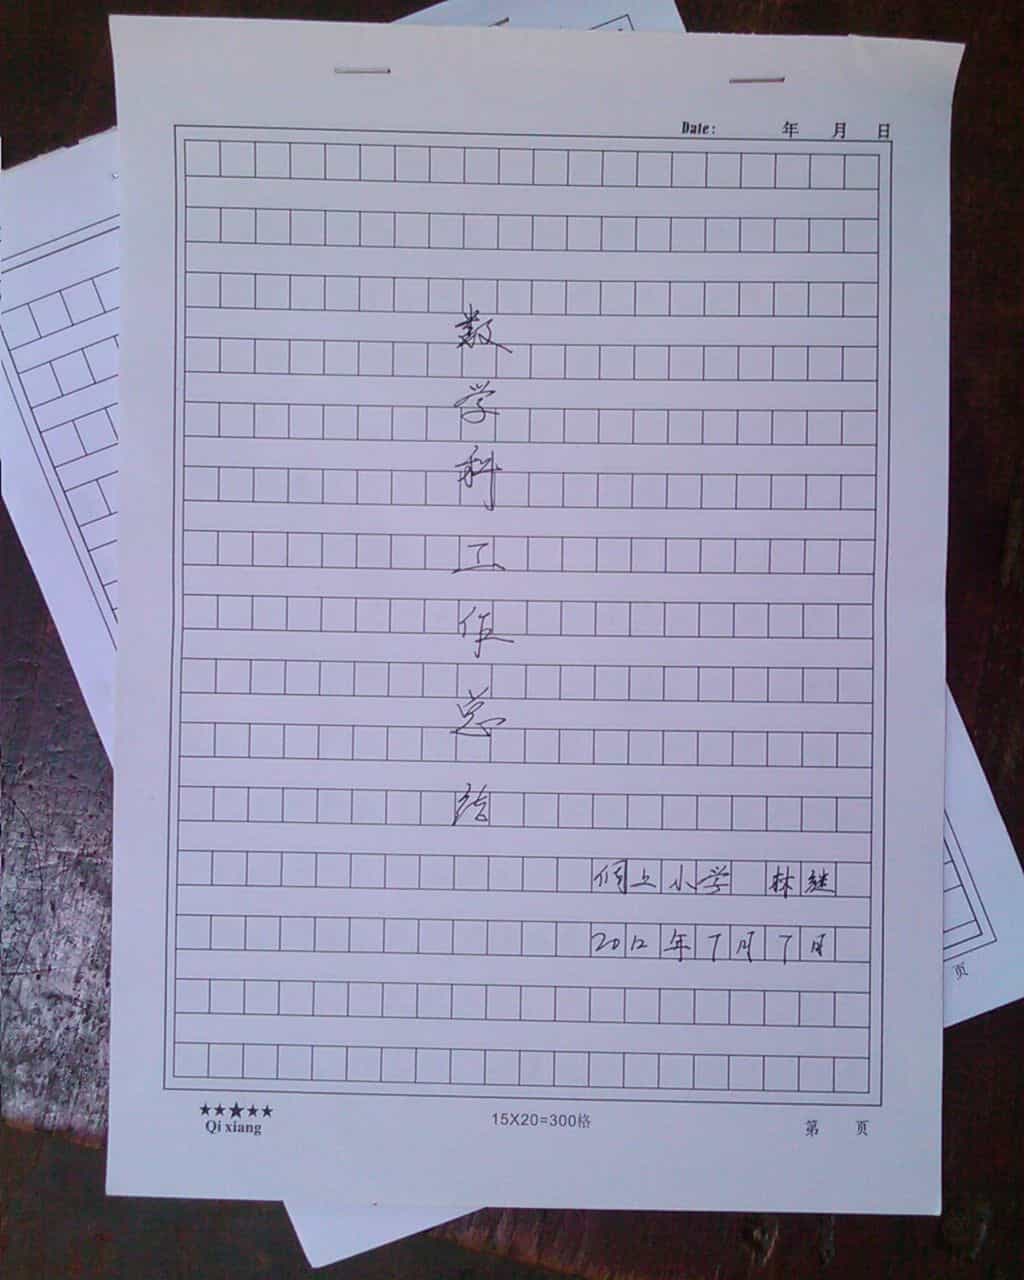 Date: 年 月 日
数
学
科
工
作
总
结
上小学 林继
2012年7月7日
★★★★★
Qi xiang
15X20=300格
第 页
页